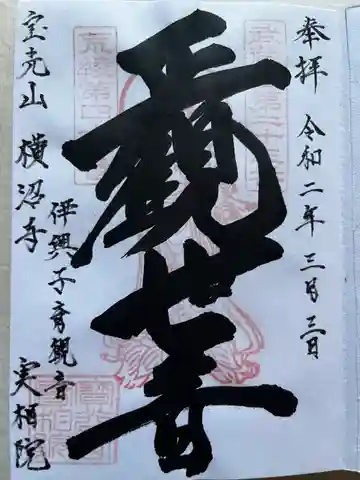 奉拝 令和二年三月三日
正觀世音
伊興子育観音
宝光山 横沼寺 実相院